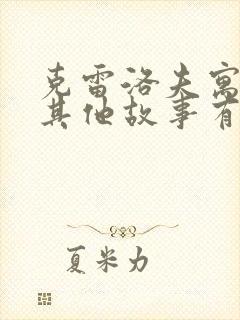 克雷洛夫寓
其他故事有
夏米力